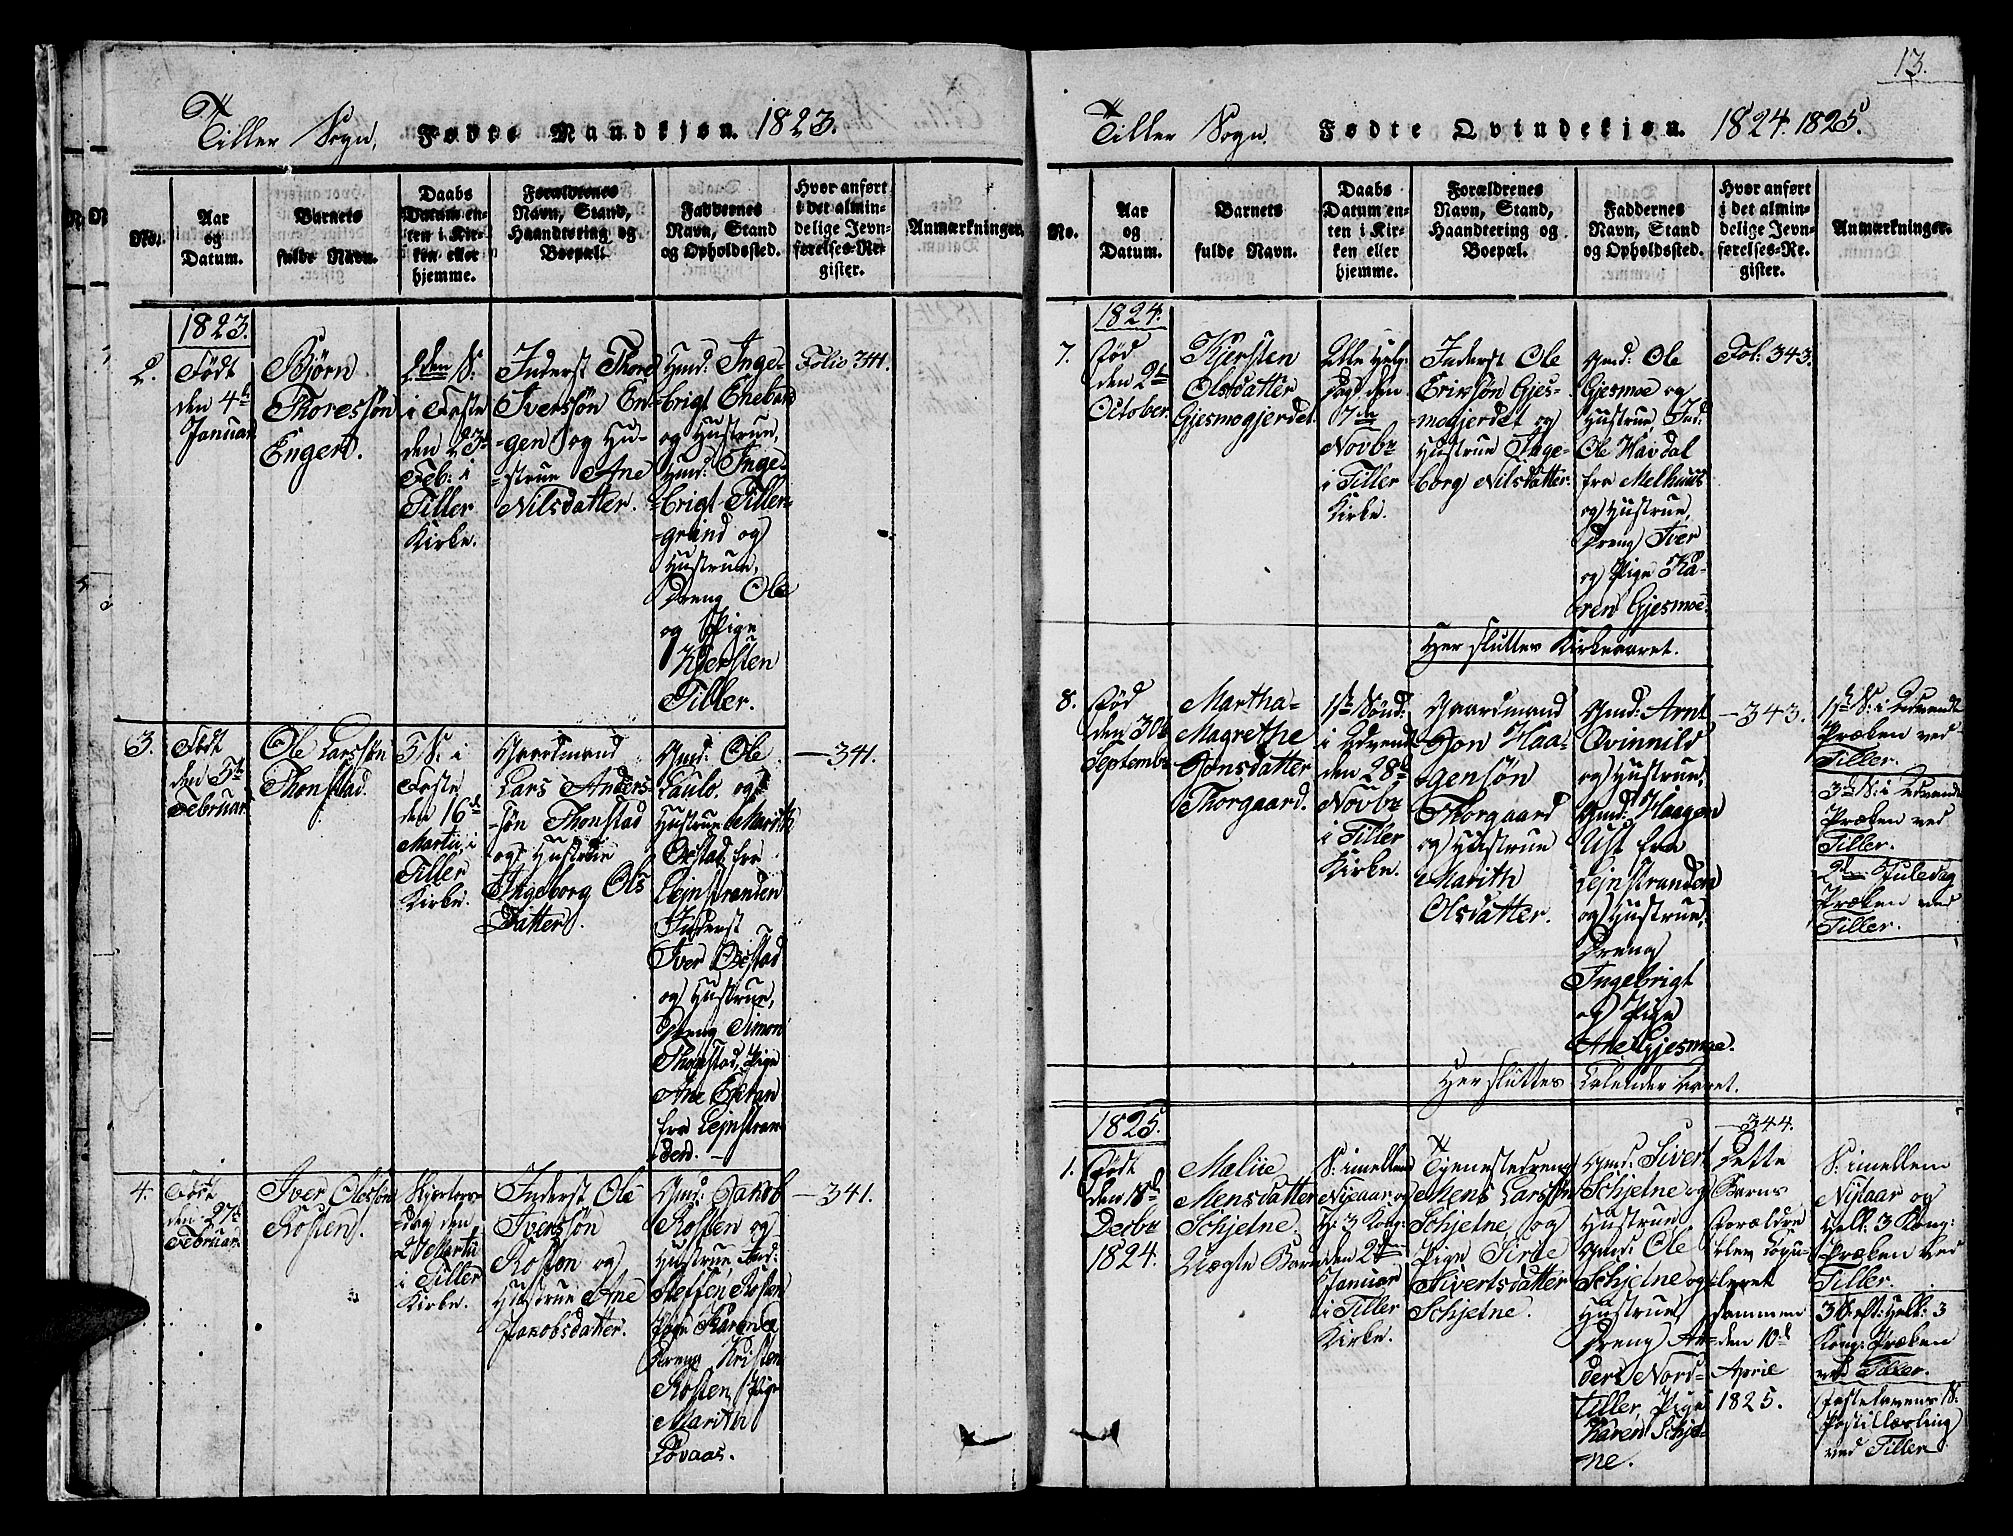 Tiller Sogn, Fødte Mandkjøn. 1823.
No.
Aar
og
Datum.
Barnets
fulde Navn.
Daabs
Datum en-
ten i Kir-
ken eller
hjemme.
Forældrenes
Navn, Stand,
Haandtering og
Boepæl.
Faddernes
Navn, Stand
og Opholdssted.
Hvor anført
i det almin-
delige Jevn-
førelses-Re-
gister.
Anmærkninger.
1823.
2.
Født
den 4de
Januar
Bjørn
Thoressøn
Engen.
2den S:
i Faste
den 23de
Feb: i
Tiller
Kirke.
Inderst Thore
Iverssøn En-
gen og Hu-
strue Ane
Nilsdatter.
Gmd: Inge-
brigt Enebak
og Hustrue,
Gmd: Inge-
brigt Tiller-
grind og
Hustrue,
Dreng Ole
og Pige
Kjersten
Tiller.
Folio 341.
3.
Født
den 5te
Februar
Ole Larssøn
Thonstad.
5 S: i
Faste
den 16de
Martii i
Tiller
Kirke.
Gaardmand
Lars Anders-
søn Thonstad
og Hustrue
Ingeborg Ols
Datter.
Gmd: Ole
Laulo og
Hustrue Marith
Øxstad fra
Lejnstranden
Inderst
Iver Øxstad
og Hustrue,
Dreng Simon
Thonstad, Pige
Ane
fra Lejnstran-
den.
— 341.
4.
Født
den 27de
Februar.
Iver Olssøn
Rosten.
Skjertors-
dag den
27 Martii
i Tiller
Kirke.
Inderst Ole
Iverssøn
Rosten og
Hustrue Ane
Jakobsdatter.
Gmd: Jakob
Rosten og
Hustrue, Ind:
Steffen Rosten
Pige Karen
Dreng Kristen
Rosten, Pige
Marith
Løvaas.
— 341.
13.
Tiller Sogn. Fødte Qvindekjøn. 1824. 1825.
No.
Aar
og
Datum.
Barnets
fulde Navn.
Daabs
Datum en-
ten i Kir-
ken eller
hjemme.
Forældrenes
Navn, Stand,
Haandtering og
Boepæl.
Faddernes
Navn, Stand
og Opholdssted.
Hvor anført
i det almin-
delige Jevn-
førelses-Re-
gister.
Anmærkninger.
1824.
7.
Fød
den 2de
October.
Kjersten
Olsdatter
Gjesmogjerdet.
Alle Helg:
Dag den
7de
Novbr
i Tiller
Kirke.
Inderst Ole
Erikssøn Gjes-
mogjerdet og
Hustrue Inge-
borg Nilsdatter.
Gmd: Ole
Gjesmoe og
Hustrue, Ind:
Ole Havdal
fra Melhuus
og Hustrue,
Dreng Iver
og Pige Ka-
ren Gjesmoe.
Fol: 343.
Her sluttes Kirkeaaret.
8.
Fød
den 30te
Septembr
Martha-
Magrethe
Jonsdatter
Thorgaard.
1ste Sønd:
i Advent
den 28de
Novbr
i Tiller
Kirke.
Gaardmand
Jon Haa-
gensøn
Thorgaard
og Hustrue
Marith
Olsdatter.
Gmd: Arnt
Qvinnild
og Hustrue,
Gmd: Haagen
Ust fra
Lejnstranden
og Hustrue,
Dreng
Ingebrigt
og Pige
Ane Gjesmoe.
— 343.
1ste S: i Advent
Præken ved
Tiller.
3die S: i Advent
Præken ved
Tiller.
2den Juledag
Præken ved
Tiller.
Her sluttes Calender Aaret.
1825.
1.
Født
den 18de
Decbr
1824.
Mæliie
Mensdatter
Schjelne.
Uægte Barn
S: imellem
Nyeaar og
H: 3 Kong:
den 2den
Januar
i Tiller
Kirke.
Tjenestedreng
Mens Larssøn
Schjelne, og
Pige Sirie
Sivertsdatter
Schjelne.
Gmd: Sivert
Schjelne og
Hustrue,
Gmd: Ole
Schjelne og
Hustrue,
Dreng An-
ders Nord-
tiller, Pige
Karen Schjel-
ne.
— 344.
Dette
Barns
Forældre
blev Copu-
leret
sammen
den 10de
April
1825.
S: imellem
Nytaar og
Hell: 3 Kong:
Præken ved
Tiller.
3 S. eft: Hell: 3
Kong: Præken
ved Tiller.
Fastelavens S:
Postillæsning
ved Tiller.